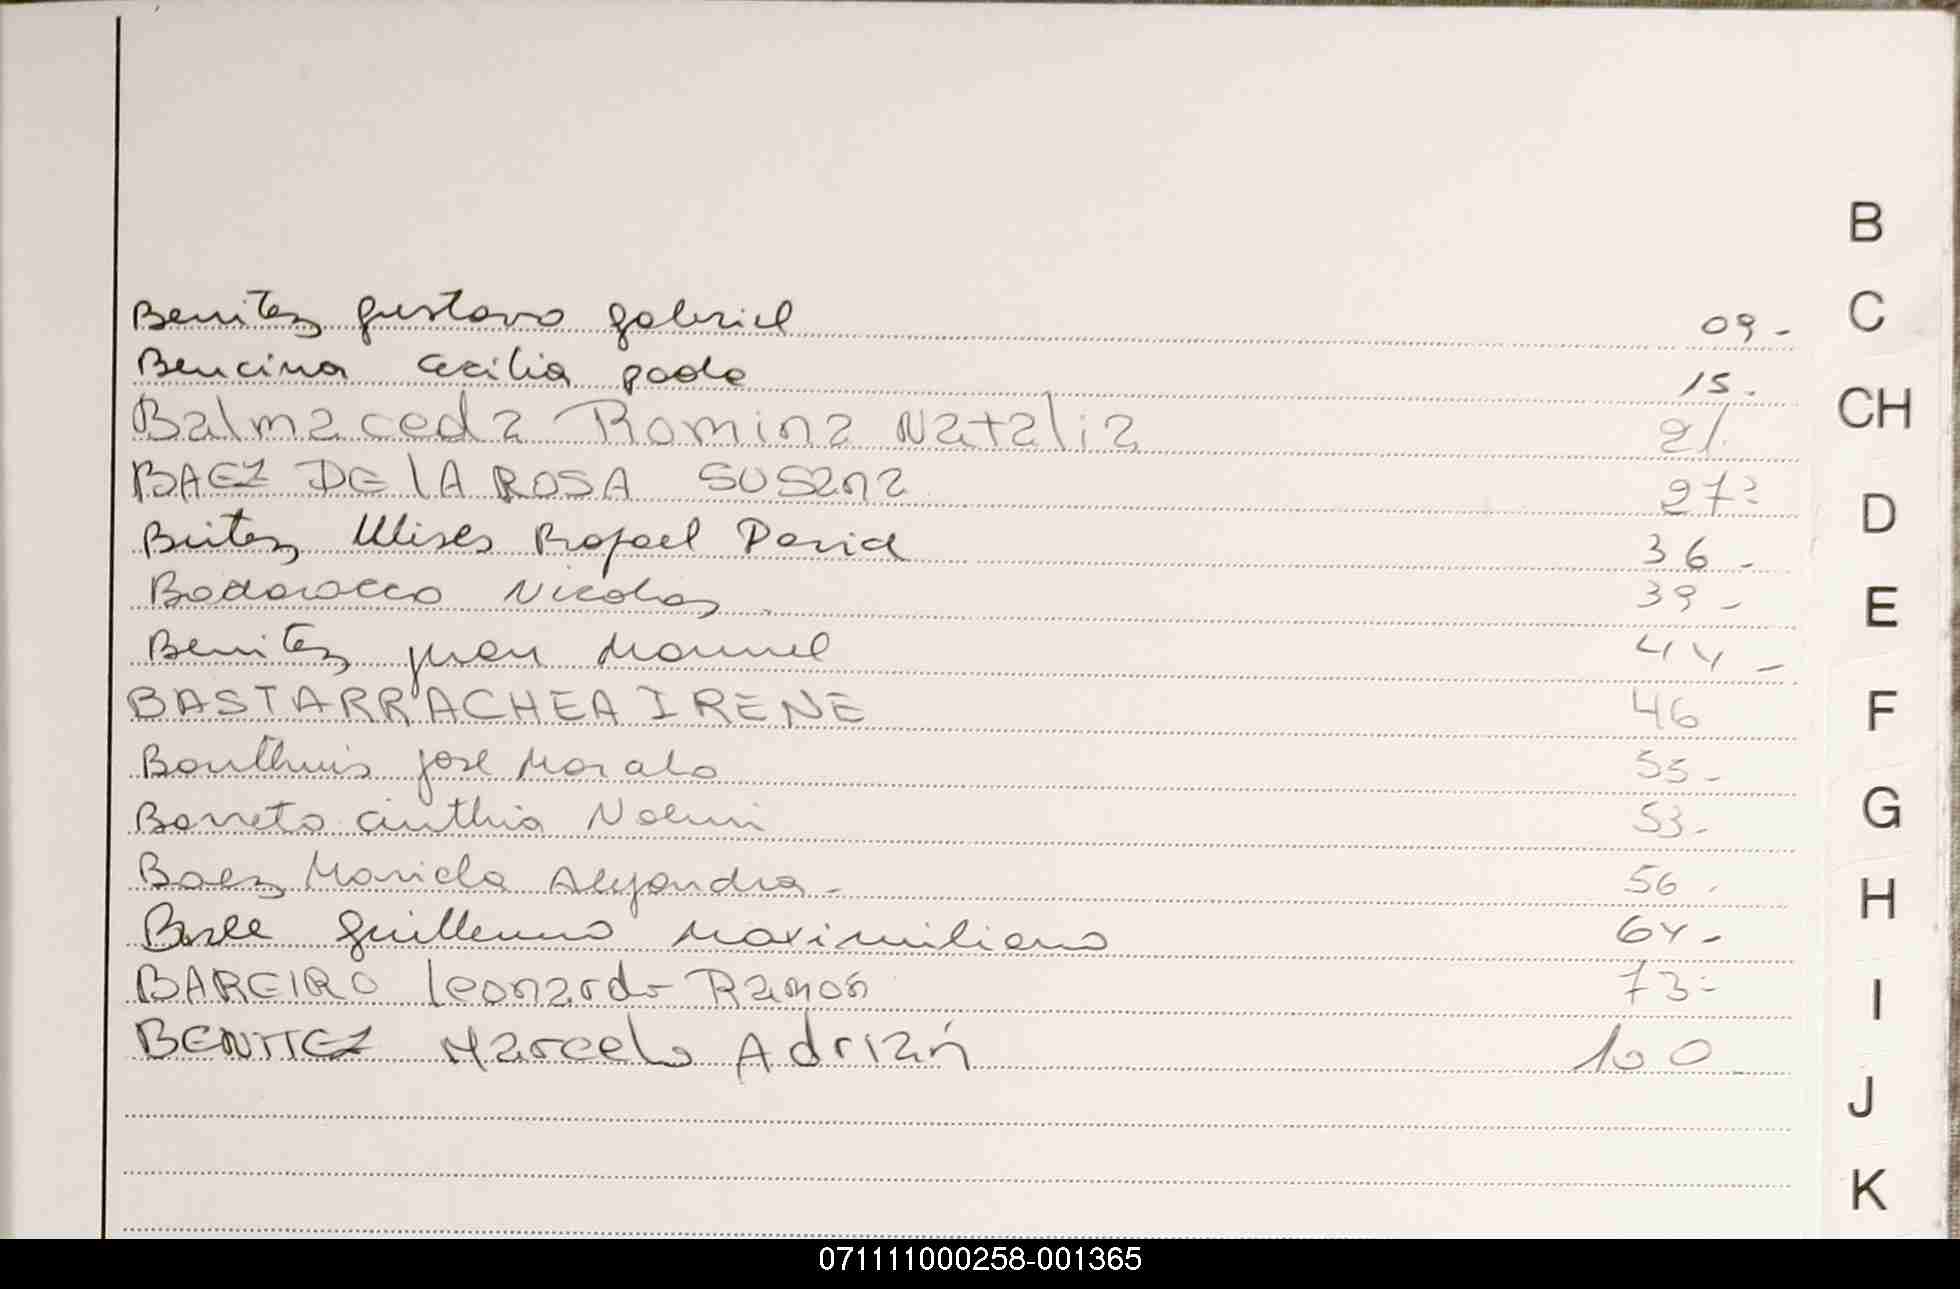 B
C
CH
D
E
F
G
H
I
J
K
Benitez gustavo gabriel 09-
Bencina Cecilia paola 15.
Balmaceda Romina Natalia 21.
BAEZ DE lA ROSA SUSana 27-
Ulises Rafael David 36-
Nicolas 39-
Benitez juan Manuel 44-
BASTARRACHEA IRENE 46
Bonthuis jose 53-
Barreto cinthia Noemi 53-
Baez Mariela Alejandra- 56.
Guillermo Maximiliano 64-
BAREIRO leonardo Ramon 73-
BENITEZ Marcelo Adrián 100-
071111000258-001365